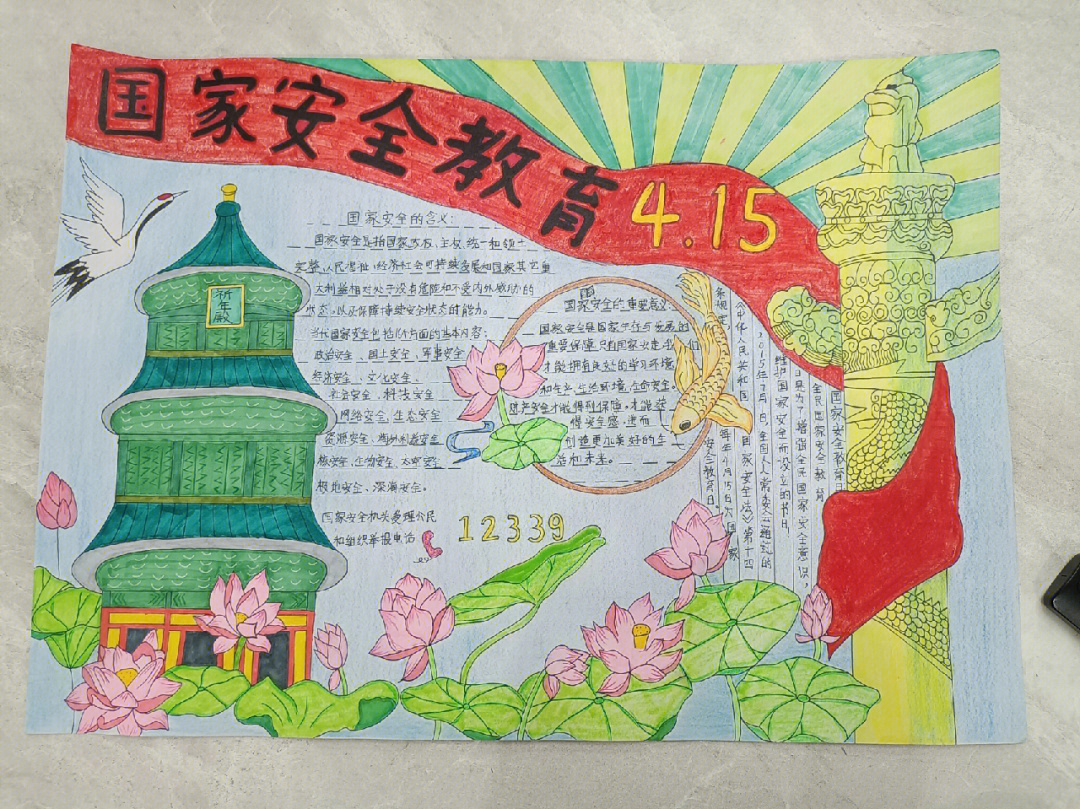 国家安全教育
4.15
祈年殿
国家安全的含义:
国家安全是指国家政权、主权、统一和领土
完整、人民福祉、经济社会可持续发展和国家其它重
大利益相对处于没有危险和不受内外威胁的
状态,以及保障持续安全状态的能力。
当代国家安全包括16方面的基本内容:
政治安全、国土安全、军事安全
经济安全、文化安全、
社会安全、科技安全
网络安全、生态安全
资源安全、海外利益安全
核安全、生物安全、太空安全
极地安全、深海安全。
国家安全机关受理公民
和组织举报电话
12339
国家安全的重要意义:
国家安全是国家生存与发展的
重要保障,只有国家安定,我们
才能拥有良好的学习环境
和生产生活环境,生命安全。
财产安全才能得到保障,才能获
得安全感,进而
创造更加美好的生
活和未来。
国家安全教育日
全民国家安全教育
日是为了增强全民国家安全意识,
维护国家安全而设立的节日。
2015年7月1日,全国人大常委会通过的
《中华人民共和国国家安全法》第十四
条规定每年4月15日为国家
安全教育日。